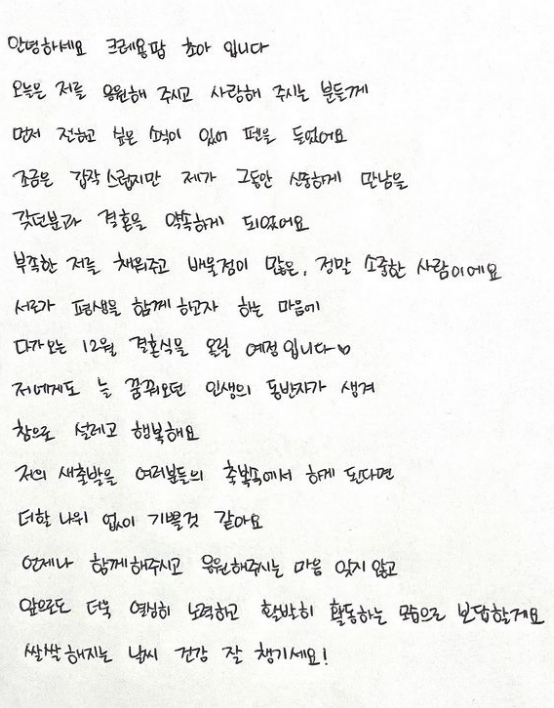 안녕하세요 크레용팝 초아 입니다
오늘은 저를 응원해 주시고 사랑해 주시는 분들께
먼저 전하고 싶은 소식이 있어 펜을 들었어요
조금은 갑작스럽지만 제가 그동안 신중하게 만남을
갖던분과 결혼을 약속하게 되었어요
부족한 저를 채워주고 배울점이 많은, 정말 소중한 사람이에요
서로가 평생을 함께 하고자 하는 마음에
다가오는 12월 결혼식을 올릴 예정입니다♡
저에게도 늘 꿈꿔오던 인생의 동반자가 생겨
참으로 설레고 행복해요
저의 새출발을 여러분들의 축복속에서 하게 된다면
더할 나위 없이 기쁠것 같아요
언제나 함께해주시고 응원해주시는 마음 잊지 않고
앞으로도 더욱 열심히 노력하고 활발히 활동하는 모습으로 보답할게요
쌀쌀해지는 날씨 건강 잘 챙기세요!